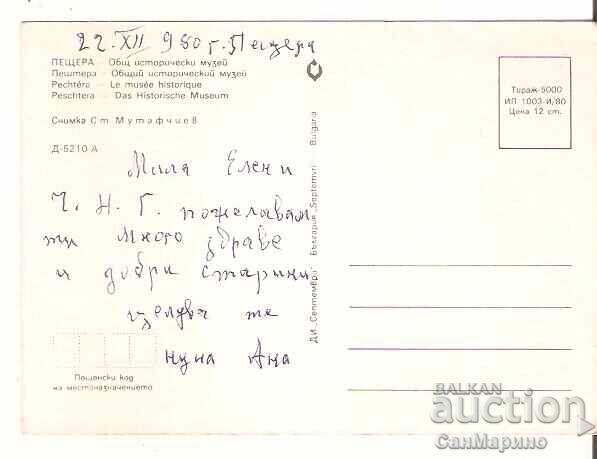 22. XII 980 г. Пещера
ПЕЩЕРА — Общ исторически музей
Пештера — Общий исторический музей
Pechtéra — Le musée historique
Peschtera — Das Historische Museum
Снимка Ст. Мутафчиев
Д-5210-А
Тираж-5000
ИП. 1003-И/80
Цена 12 ст.
Мила Елени
Ч. Н. Г. пожелавам
ти много здраве
и добри старини
целува те
нуна Ана
ДИ „Септември“ България „Septemvri“ Bulgaria
Пощенски код
на местоназначението
BALKAN
auction
СанМарино